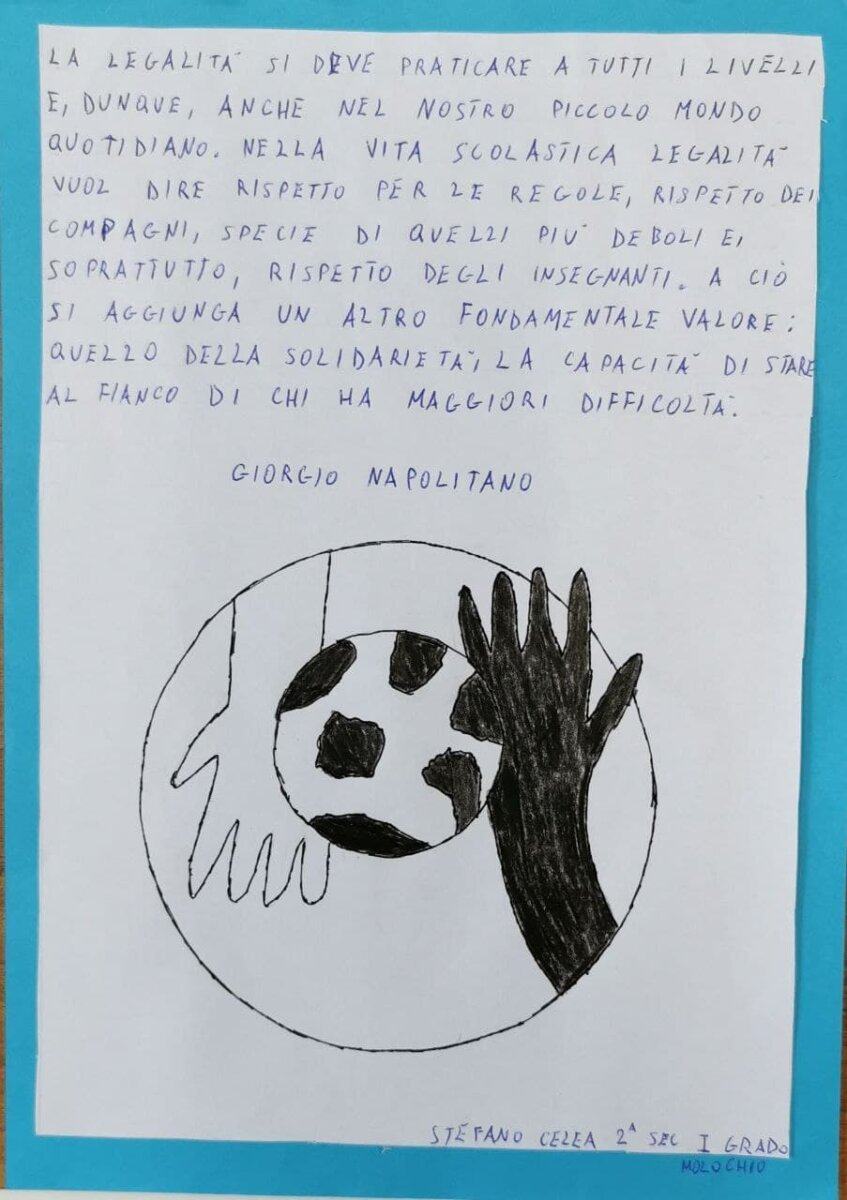 LA LEGALITÀ SI DEVE PRATICARE A TUTTI I LIVELLI
E, DUNQUE, ANCHE NEL NOSTRO PICCOLO MONDO
QUOTIDIANO. NELLA VITA SCOLASTICA LEGALITÀ
VUOL DIRE RISPETTO PER LE REGOLE, RISPETTO DEI
COMPAGNI, SPECIE DI QUELLI PIÙ DEBOLI E,
SOPRATTUTTO, RISPETTO DEGLI INSEGNANTI. A CIÒ
SI AGGIUNGA UN ALTRO FONDAMENTALE VALORE:
QUELLO DELLA SOLIDARIETÀ, LA CAPACITÀ DI STARE
AL FIANCO DI CHI HA MAGGIORI DIFFICOLTÀ.
GIORGIO NAPOLITANO
STEFANO CELEA 2ᴬ SEC I GRADO
MOLOCHIO